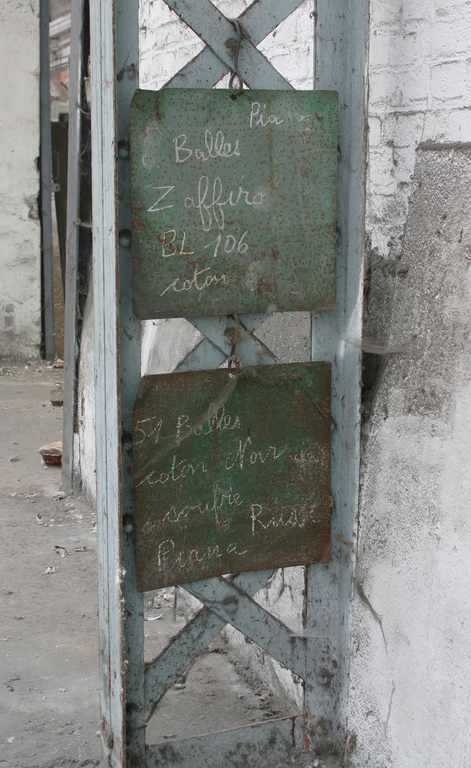 Balles
Zaffiro
BL 106
coton
51 Balles
coton Noir
soufre
Russe
Piana